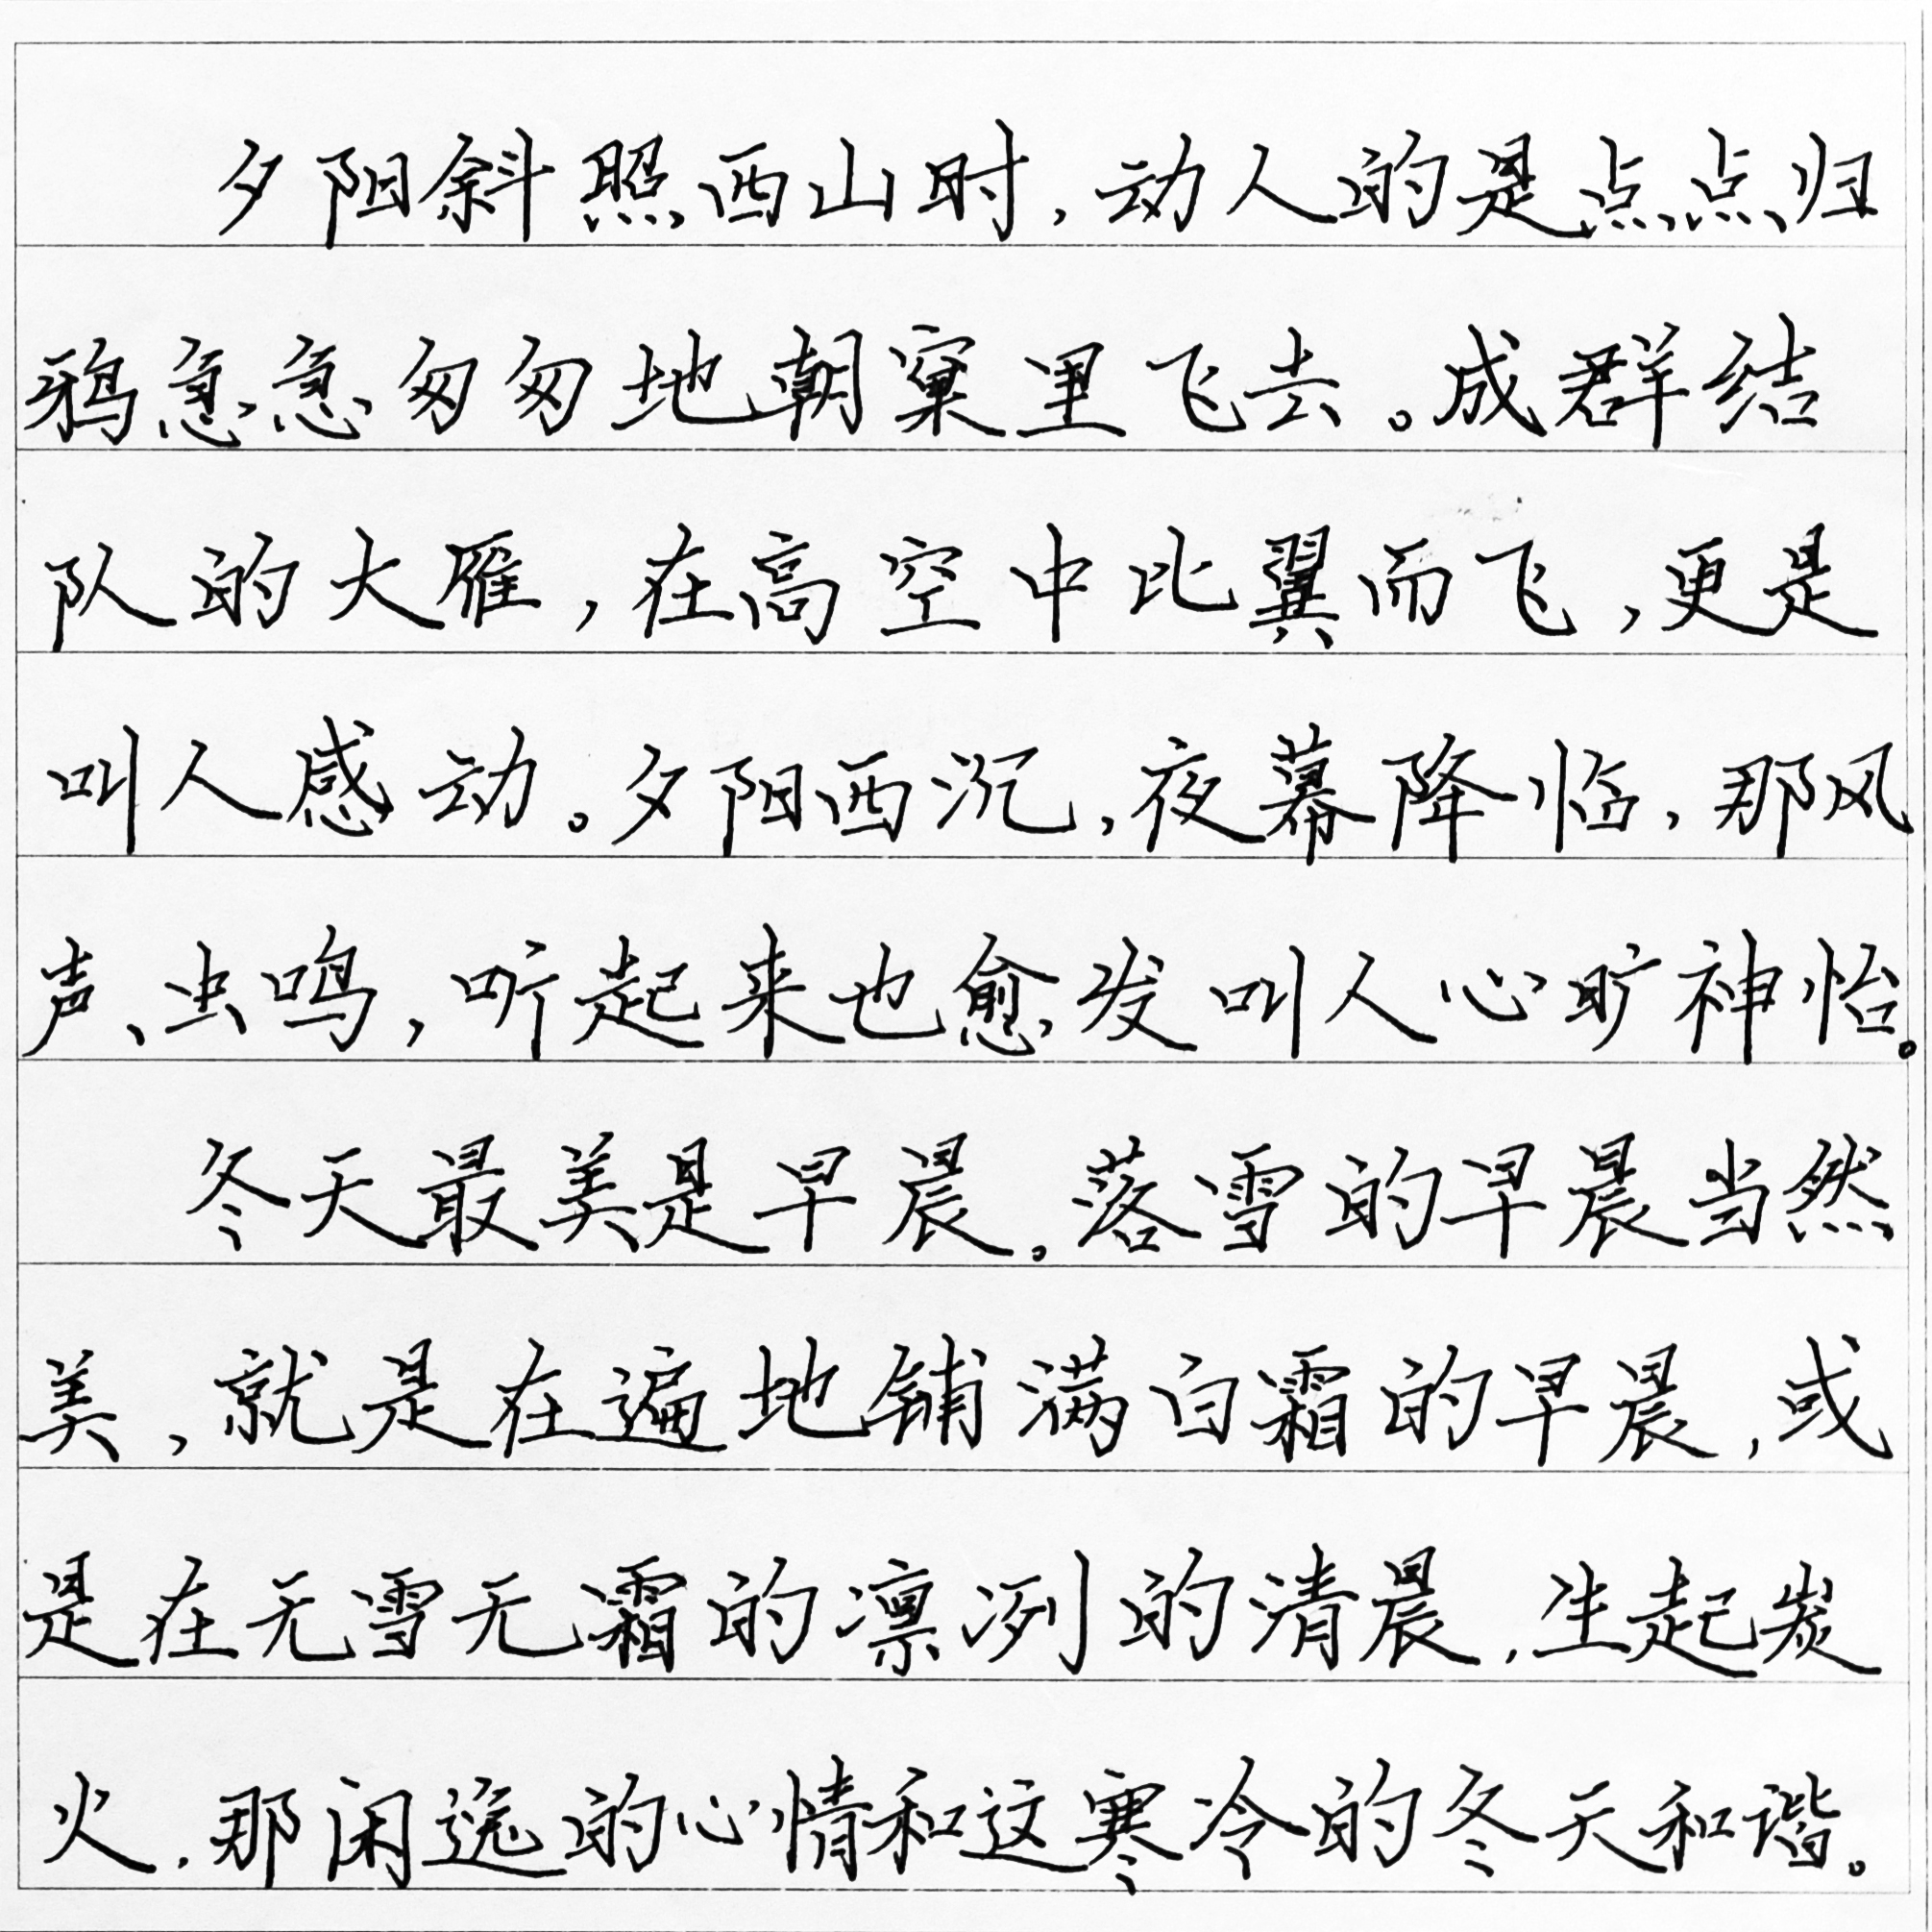 夕阳斜照西山时，动人的是点点归
鸦急急匆匆地朝窠里飞去。成群结
队的大雁，在高空中比翼而飞，更是
叫人感动。夕阳西沉，夜幕降临，那风
声、虫鸣，听起来也愈发叫人心旷神怡。
冬天最美是早晨。落雪的早晨当然
美，就是在遍地铺满白霜的早晨，或
是在无雪无霜的凛冽的清晨，生起炭
火，那闲逸的心情和这寒冷的冬天和谐。